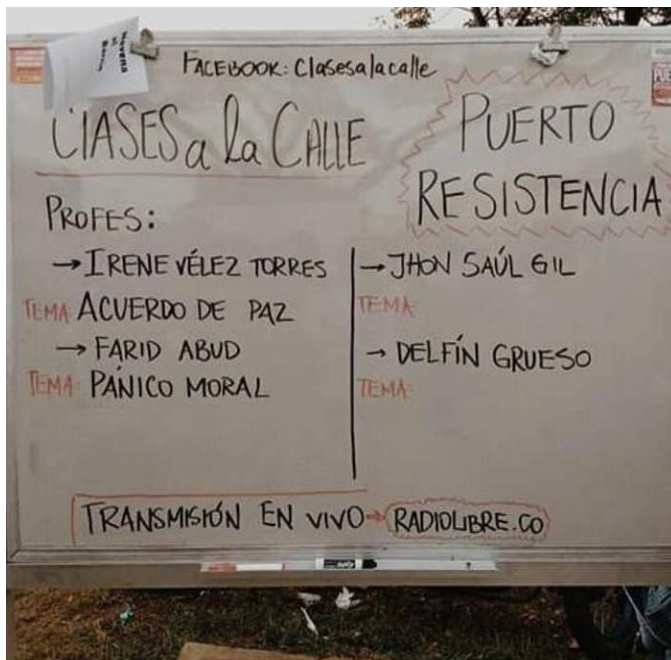 FACEBOOK: Clasesalacalle
CLASES a la CALLE
PUERTO
RESISTENCIA
PROFES:
→ IRENE VÉLEZ TORRES
TEMA: ACUERDO DE PAZ
→ FARID ABUD
TEMA: PÁNICO MORAL
→ JHON SAÚL GIL
TEMA:
→ DELFÍN GRUESO
TEMA:
TRANSMISIÓN EN VIVO → RADIOLIBRE.CO